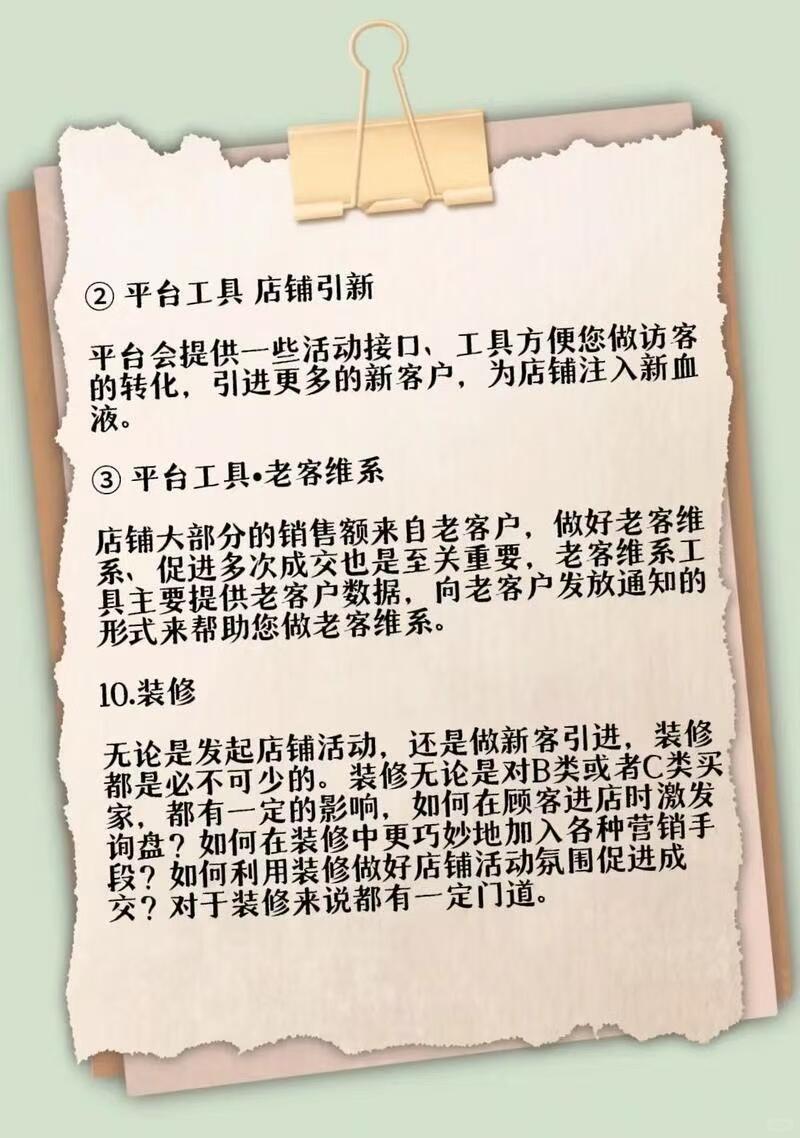 ② 平台工具 店铺引新
平台会提供一些活动接口、工具方便您做访客
的转化，引进更多的新客户，为店铺注入新血
液。
③ 平台工具•老客维系
店铺大部分的销售额来自老客户，做好老客维
系、促进多次成交也是至关重要，老客维系工
具主要提供老客户数据，向老客户发放通知的
形式来帮助您做老客维系。
10.装修
无论是发起店铺活动，还是做新客引进，装修
都是必不可少的。装修无论是对B类或者C类买
家，都有一定的影响，如何在顾客进店时激发
询盘？如何在装修中更巧妙地加入各种营销手
段？如何利用装修做好店铺活动氛围促进成
交？对于装修来说都有一定门道。